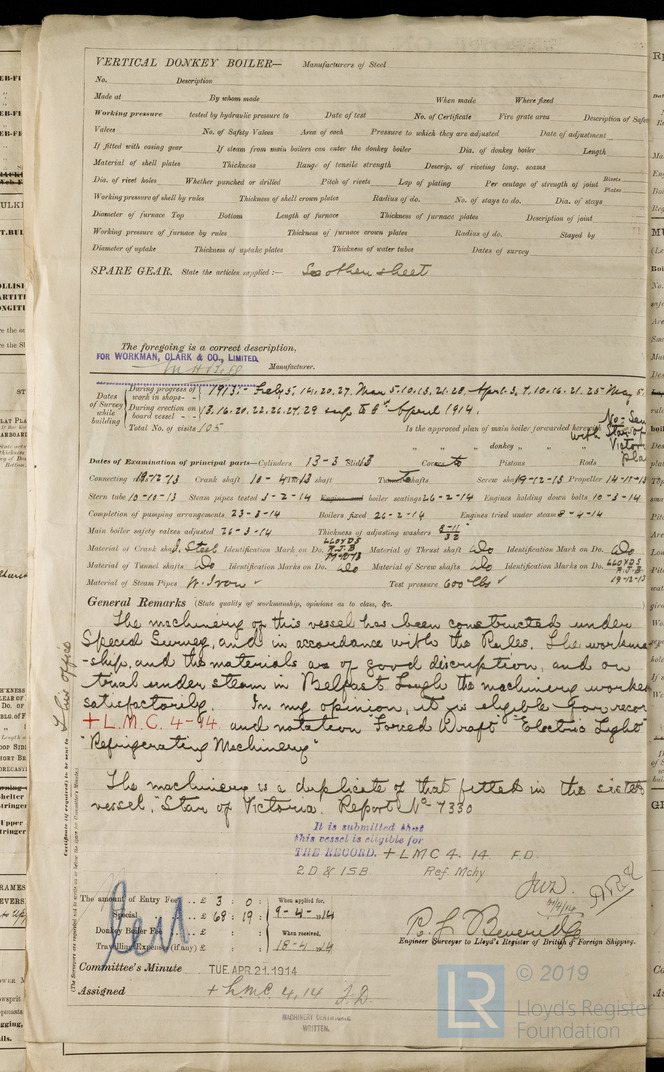 VERTICAL DONKEY BOILER— Manufacturers of Steel
No. Description
Made at By whom made When made Where fixed
Working pressure tested by hydraulic pressure to Date of test No. of Certificate Fire grate area Description of Safe
Valves No. of Safety Valves Area of each Pressure to which they are adjusted Date of adjustment
If fitted with easing gear If steam from main boilers can enter the donkey boiler Dia. of donkey boiler Length
Material of shell plates Thickness Range of tensile strength Descrip. of riveting long. seams
Dia. of rivet holes Whether punched or drilled Pitch of rivets Lap of plating Per centage of strength of joint Rivets Plates
Working pressure of shell by rules Thickness of shell crown plates Radius of do. No. of stays to do. Dia. of stays
Diameter of furnace Top Bottom Length of furnace Thickness of furnace plates Description of joint
Working pressure of furnace by rules Thickness of furnace crown plates Radius of do. Stayed by
Diameter of uptake Thickness of uptake plates Thickness of water tubes Dates of survey
SPARE GEAR. State the articles supplied :— See other sheet
The foregoing is a correct description,
FOR WORKMAN, CLARK & CO., LIMITED.
Manufacturer.
Dates of Survey while building
During progress of work in shops - - 1913:- Feby 5, 14, 20, 27, Mar 5, 10, 13, 21, 28, April 3, 7, 10, 16, 21, 25 May 5
During erection on board vessel - - 13, 16, 20, 22, 26, 27, 29 up to 8th April 1914.
Total No. of visits 105 Is the approved plan of main boiler forwarded herewith No- Sent with Star of Victoria
" " " donkey " "
Dates of Examination of principal parts—Cylinders 13-3-13 Slides Covers Pistons Rods
Connecting 19-12-13 Crank shaft Thrust shaft Tunnel shafts Screw shaft 19-12-13 Propeller 14-11-13
Stern tube 10-10-13 Steam pipes tested 3-2-14 Engine and boiler seatings 26-2-14 Engines holding down bolts 10-3-14
Completion of pumping arrangements 23-3-14 Boilers fixed 26-2-14 Engines tried under steam 8-4-14
Main boiler safety valves adjusted 26-3-14 Thickness of adjusting washers
Material of Crank shaft I. Steel Identification Mark on Do. LLOYDS R.J.B. Material of Thrust shaft Do Identification Mark on Do. Do
Material of Tunnel shafts Do Identification Marks on Do. Do Material of Screw shafts Do Identification Marks on Do. LLOYDS R.J.B. 19-12-13
Material of Steam Pipes W. Iron ✓ Test pressure 600 lbs ✓
General Remarks (State quality of workmanship, opinions as to class, &c.
The machinery of this vessel has been constructed under
Special Survey, and in accordance with the Rules. The workma
-ship, and the materials are of good discription, and on
trial under steam in Belfast Lough the machinery worked
satisfactorily. In my opinion, it is eligible for recor
+ L.M.C. 4-14. and notation "Forced Draft" "Electric Light"
"Refrigerating Machinery"
The machinery is a duplicate of that fitted in the sister
vessel, "Star of Victoria". Report No 7330
It is submitted that
this vessel is eligible for
THE RECORD. + LMC 4. 14 F.D.
2 D.B. 1 S.B. Ref. Mchy
The amount of Entry Fee .. £ 3 : 0 : When applied for,
Special .. £ 69 : 19 : 9-4-1914
Donkey Boiler Fee .. £ : : When received,
Travelling Expenses (if any) £ : : 18-4-1914
R. J. Beveridge
Engineer Surveyor to Lloyd's Register of British & Foreign Shipping.
Committee's Minute TUE. APR. 21. 1914
Assigned + LMC 4.14 F.D.
MACHINERY CERTIFICATE
WRITTEN.
Certificate (if required) to be sent to This office
LR © 2019
Lloyd's Register
Foundation